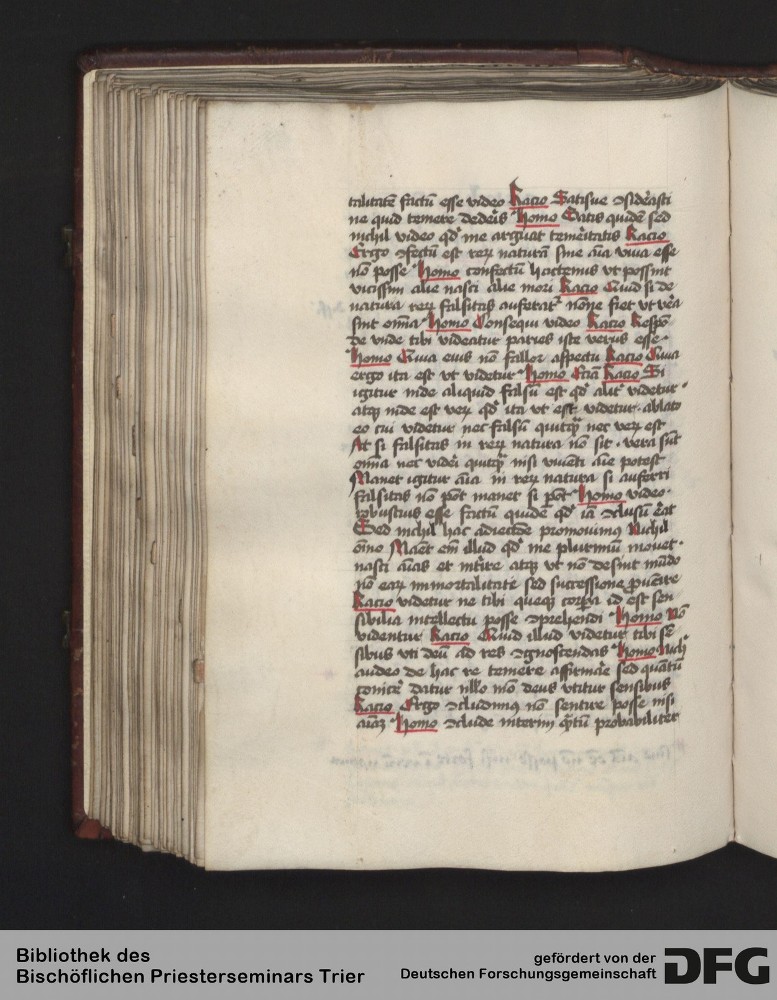 talitatē factū esse video Racio Satisne ɔsiderasti
ne quid temere dederis Homo Satis quidē sed
nichil video qd' me arguat temeritatis Racio
Ergo ɔfectū est rerū naturā sine aīa viva esse
nō posse Homo confectū hactenus ut possint
vicissim alie nasci alie mori Racio Quid si de
natura rerū falsitas auferat' nōne fiet ut vera
sint omīa Homo Consequi video Racio Respō
de unde tibi videatur paries iste verus esse
Homo Quia eius nō fallor aspectu Racio Quia
ergo ita est ut videtur Homo Eciā Racio Si
igitur inde aliquid falsū est qd' alit' videtur
atq; inde est verū qd' ita ut est videtur ablato
eo cui videtur nec falsū quitq̄ nec verū est
At si falsitas in rerū natura nō sit vera sūt
omīa nec videri quitq̄ nisi viventi aīe potest
Manet igitur aīa in rerū natura si auferri
falsitas nō pōt manet si pōt Homo video
robustius esse factū quidē qd' iā ɔclusū erat
Sed nichil hac adiectōe promovimus Nichil
oīno Manet enī illud qd' me plurimū movet
nasci aīas et int'ire atq; ut nō desint mūdo
nō earū immortalitate sed successione provenire
Racio videtur ne tibi queq; corpora id est sen
sibilia intellectu posse ɔprehendi Homo Nō
videntur Racio Quid illud videtur tibi sē
sibus uti deū ad res ɔgnoscendas Homo Nich'
audeo de hac re temere affirmare sed quātū
conicere datur nllo mō deus utitur sensibus
Racio Ergo ɔcludimus nō sentire posse nisi
aīaʒ Homo ɔclude interim q̄tū probabiliter
Bibliothek des
Bischöflichen Priesterseminars Trier
gefördert von der
Deutschen Forschungsgemeinschaft
DFG